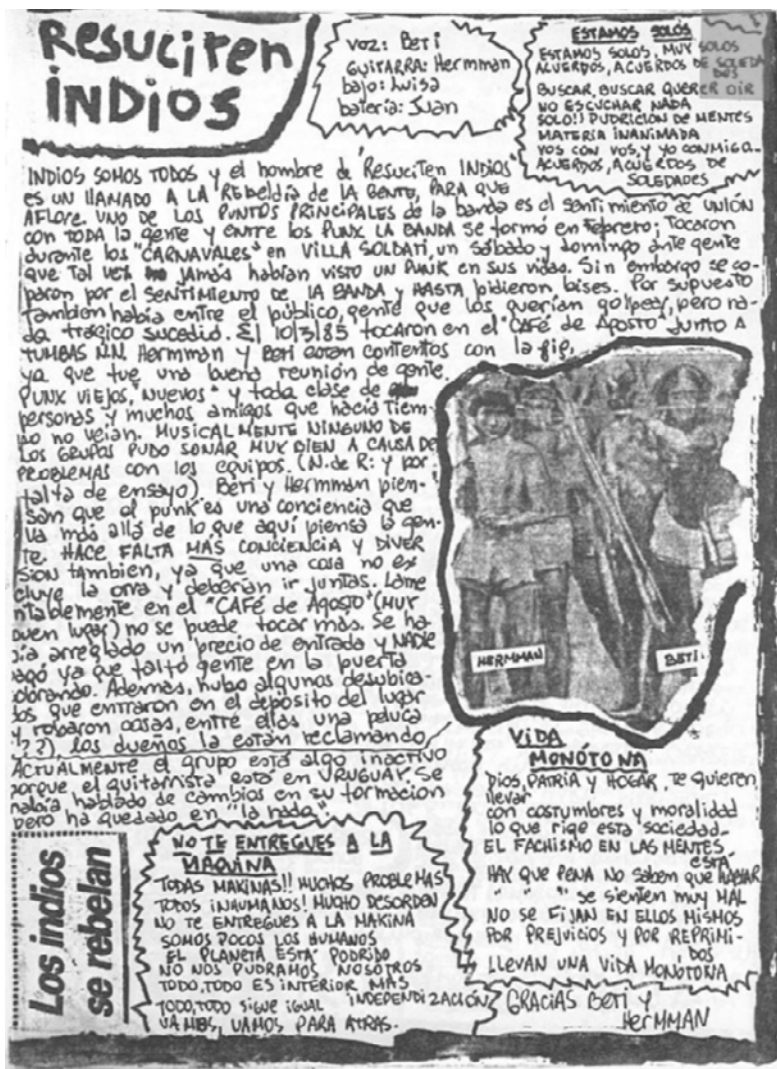 Resuciten
INDIOS
VOZ: Beti
GUITARRA: Hermman
bajo: Luisa
bateria: Juan
ESTAMOS SOLOS
ESTAMOS SOLOS, MUY SOLOS
ACUERDOS, ACUERDOS DE SOLEDA
DES
BUSCAR, BUSCAR QUERER OIR
NO ESCUCHAR NADA
SOLO!! PUDRICION DE MENTES
MATERIA INANIMADA
VOS CON VOS, Y YO CONMIGO-
ACUERDOS, ACUERDOS DE
SOLEDADES
INDIOS SOMOS TODOS y el nombre de "Resuciten INDIOS"
es UN llAMADO A LA REbelDía de LA GENTE, PARA QUE
AFLORE UNO DE LOS PUNTOS PRINCIPALES de la banda es el sentimiento de UNIÓN
con TODA la gente y ENTRE los PUNX. LA BANDA SE formó en febrero; Tocaron
durante los "CARNAVALES" en VILLA SOLDATI, un sábado y domingo ante gente
que Tal vez jamás habían visto un PUNK en sus vidas. Sin embargo se co-
paron por el SENTIMIENTO DE LA BANDA y HASTA pidieron bises. Por supuesto
tambien había entre el público, gente que los querían golpear, pero na-
da trágico sucedió. El 10/3/85 tocaron en el "CAFé de AGOSTO" JUNTO A
TUMBAS NN. Hermman y Beti están contentos con la gig,
ya que fue una buena reunión de gente.
PUNX VIEJOS, "NUEVOS" y toda clase de
personas y muchos amigos que hacía Tiem-
po no veían. MUSICALMENTE NINGUNO DE
LOS GRUPOS PUDO SONAR MUY BIEN A CAUSA DE
PROBLEMAS con los equipos. (N. de R: y por
falta de ensayo). Beti y Hermman pien-
san que el punk es una conciencia que
va más allá de lo que aquí piensa la gen-
te. HACE FALTA MÁS CONCIENCIA Y DIVER
SION tambien, ya que una cosa no ex
cluye la otra y deberían ir juntas. Lame
ntablemente en el "CAFé de Agosto" (MUY
buen lugar) no se puede tocar más. Se ha-
bía arreglado un precio de entrada y NADIE
pagó ya que faltó gente en la puerta
cobrando. Además, hubo algunos desubica-
dos que entraron en el depósito del lugar
y robaron cosas, entre ellas una peluca
(??), los dueños la están reclamando
ACTUALMENTE el grupo está algo inactivo
porque el guitarrista está en URUGUAY. Se
había hablado de cambios en su formación
pero ha quedado en "la nada"
HERMMAN
BETI
Los indios
se rebelan
NO TE ENTREGUES A LA
MÁQUINA
TODAS MAKINAS!! MUCHOS PROBLEMAS
TODOS INHUMANOS! MUCHO DESORDEN
NO TE ENTREGUES A LA MAKINA
SOMOS POCOS LOS HUMANOS
EL PLANETA ESTÁ PODRIDO
NO NOS PUDRAMOS NOSOTROS
TODO, TODO ES INTERIOR MÁS
INDEPENDIZACIÓN
TODO, TODO SIGUE IGUAL
VAMOS, VAMOS PARA ATRAS.
VIDA
MONÓTONA
DIOS, PATRIA Y HOGAR, te quieren
llevar
con costumbres y moralidad
lo que rige esta sociedad
EL FACHISMO EN LAS MENTES
ESTA
HAY QUE PENA NO saben que HABLAR
" " " se sienten muy MAL
NO SE FIJAN EN ELLOS MISMOS
POR PREJUICIOS Y POR REPRIMI-
DOS
LLEVAN UNA VIDA MONOTONA
GRACIAS BETI Y
HERMMAN